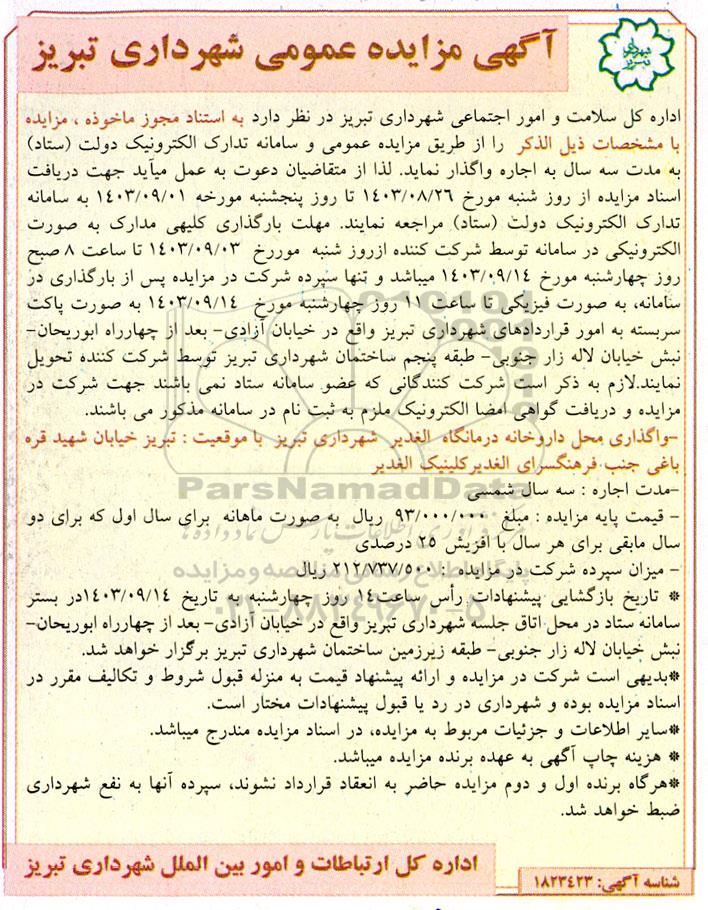 آگهی مزایده عمومی شهرداری تبریز
شهرداری تبریز
اداره کل سلامت و امور اجتماعی شهرداری تبریز در نظر دارد به استناد مجوز ماخوذه ، مزایده
با مشخصات ذیل الذکر را از طریق مزایده عمومی و سامانه تدارک الکترونیک دولت (ستاد)
به مدت سه سال به اجاره واگذار نماید. لذا از متقاضیان دعوت به عمل میآید جهت دریافت
اسناد مزایده از روز شنبه مورخ ۱۴۰۳/۰۸/۲۶ تا روز پنجشنبه مورخه ۱۴۰۳/۰۹/۰۱ به سامانه
تدارک الکترونیک دولت (ستاد) مراجعه نمایند. مهلت بارگذاری کلیهی مدارک به صورت
الکترونیکی در سامانه توسط شرکت کننده ازروز شنبه موررخ ۱۴۰۳/۰۹/۰۳ تا ساعت ۸ صبح
روز چهارشنبه مورخ ۱۴۰۳/۰۹/۱۴ میباشد و تنها سپرده شرکت در مزایده پس از بارگذاری در
سامانه، به صورت فیزیکی تا ساعت ۱۱ روز چهارشنبه مورخ ۱۴۰۳/۰۹/۱۴ به صورت پاکت
سربسته به امور قراردادهای شهرداری تبریز واقع در خیابان آزادی- بعد از چهارراه ابوریحان-
نبش خیابان لاله زار جنوبی- طبقه پنجم ساختمان شهرداری تبریز توسط شرکت کننده تحویل
نمایند.لازم به ذکر است شرکت کنندگانی که عضو سامانه ستاد نمی باشند جهت شرکت در
مزایده و دریافت گواهی امضا الکترونیک ملزم به ثبت نام در سامانه مذکور می باشند.
-واگذاری محل داروخانه درمانگاه الغدیر شهرداری تبریز با موقعیت : تبریز خیابان شهید قره
باغی جنب فرهنگسرای الغدیرکلینیک الغدیر
ParsNamadData
-مدت اجاره : سه سال شمسی
- قیمت پایه مزایده : مبلغ ۹۳/۰۰۰/۰۰۰ ریال به صورت ماهانه برای سال اول که برای دو
سال مابقی برای هر سال با افزیش ۲۵ درصدی
- میزان سپرده شرکت در مزایده : ۲۱۲/۷۳۷/۵۰۰ ریال
۰۲۱-۸۸۳۴۹۶۷۰-۵
* تاریخ بازگشایی پیشنهادات رأس ساعت۱۴ روز چهارشنبه به تاریخ ۱۴۰۳/۰۹/۱۴در بستر
سامانه ستاد در محل اتاق جلسه شهرداری تبریز واقع در خیابان آزادی- بعد از چهارراه ابوریحان-
نبش خیابان لاله زار جنوبی- طبقه زیرزمین ساختمان شهرداری تبریز برگزار خواهد شد.
*بدیهی است شرکت در مزایده و ارائه پیشنهاد قیمت به منزله قبول شروط و تکالیف مقرر در
اسناد مزایده بوده و شهرداری در رد یا قبول پیشنهادات مختار است.
*سایر اطلاعات و جزئیات مربوط به مزایده، در اسناد مزایده مندرج میباشد.
* هزینه چاپ آگهی به عهده برنده مزایده میباشد.
*هرگاه برنده اول و دوم مزایده حاضر به انعقاد قرارداد نشوند، سپرده آنها به نفع شهرداری
ضبط خواهد شد.
اداره کل ارتباطات و امور بین الملل شهرداری تبریز
شناسه آگهی: ۱۸۲۳۴۲۳